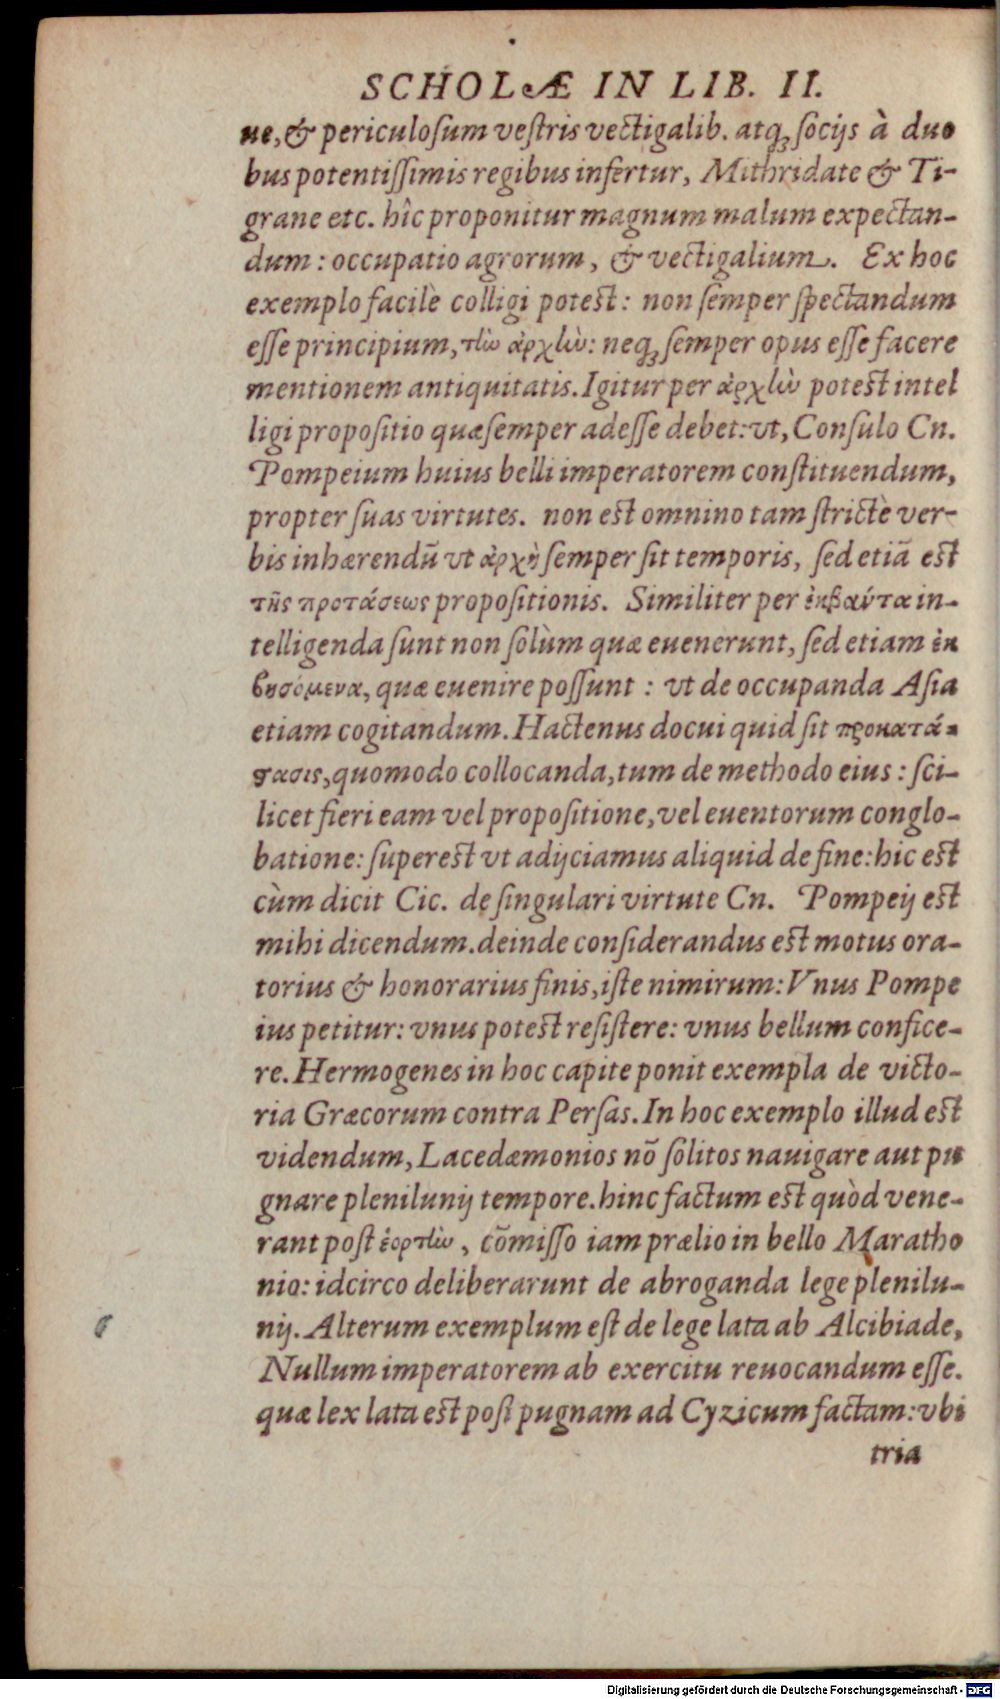 SCHOLÆ IN LIB. II.
ue, & periculosum vestris vectigalib. atq; socijs à duo
bus potentissimis regibus infertur, Mithridate & Ti-
grane etc. hîc proponitur magnum malum expectan-
dum: occupatio agrorum, & vectigalium. Ex hoc
exemplo facilè colligi potest: non semper spectandum
esse principium, τὴν ἀρχὴν: neq; semper opus esse facere
mentionem antiquitatis. Igitur per ἀρχὴν potest intel
ligi propositio quæ semper adesse debet: vt, Consulo Cn.
Pompeium huius belli imperatorem constituendum,
propter suas virtutes. non est omnino tam strictè ver-
bis inhærendū vt ἀρχὴ semper sit temporis, sed etiā est
τῆς προτάσεως propositionis. Similiter per ἐκβαύτα in-
telligenda sunt non solùm quæ euenerunt, sed etiam ἐκ
βησόμενα, quæ euenire possunt: vt de occupanda Asia
etiam cogitandum. Hactenus docui quid sit προκατά-
στασις, quomodo collocanda, tum de methodo eius: sci-
licet fieri eam vel propositione, vel euentorum conglo-
batione: superest vt adijciamus aliquid de fine: hic est
cùm dicit Cic. de singulari virtute Cn. Pompeij est
mihi dicendum. deinde considerandus est motus ora-
torius & honorarius finis, iste nimirum: Vnus Pompe
ius petitur: vnus potest resistere: vnus bellum confice-
re. Hermogenes in hoc capite ponit exempla de victo-
ria Græcorum contra Persas. In hoc exemplo illud est
videndum, Lacedæmonios nō solitos nauigare aut pu
gnare plenilunij tempore. hinc factum est quòd vene-
rant post ἑορτὴν, cōmisso iam prælio in bello Maratho
nio: idcirco deliberarunt de abroganda lege plenilu-
nij. Alterum exemplum est de lege lata ab Alcibiade,
Nullum imperatorem ab exercitu reuocandum esse.
quæ lex lata est post pugnam ad Cyzicum factam: vbi
tria
Digitalisierung gefördert durch die Deutsche Forschungsgemeinschaft - DFG